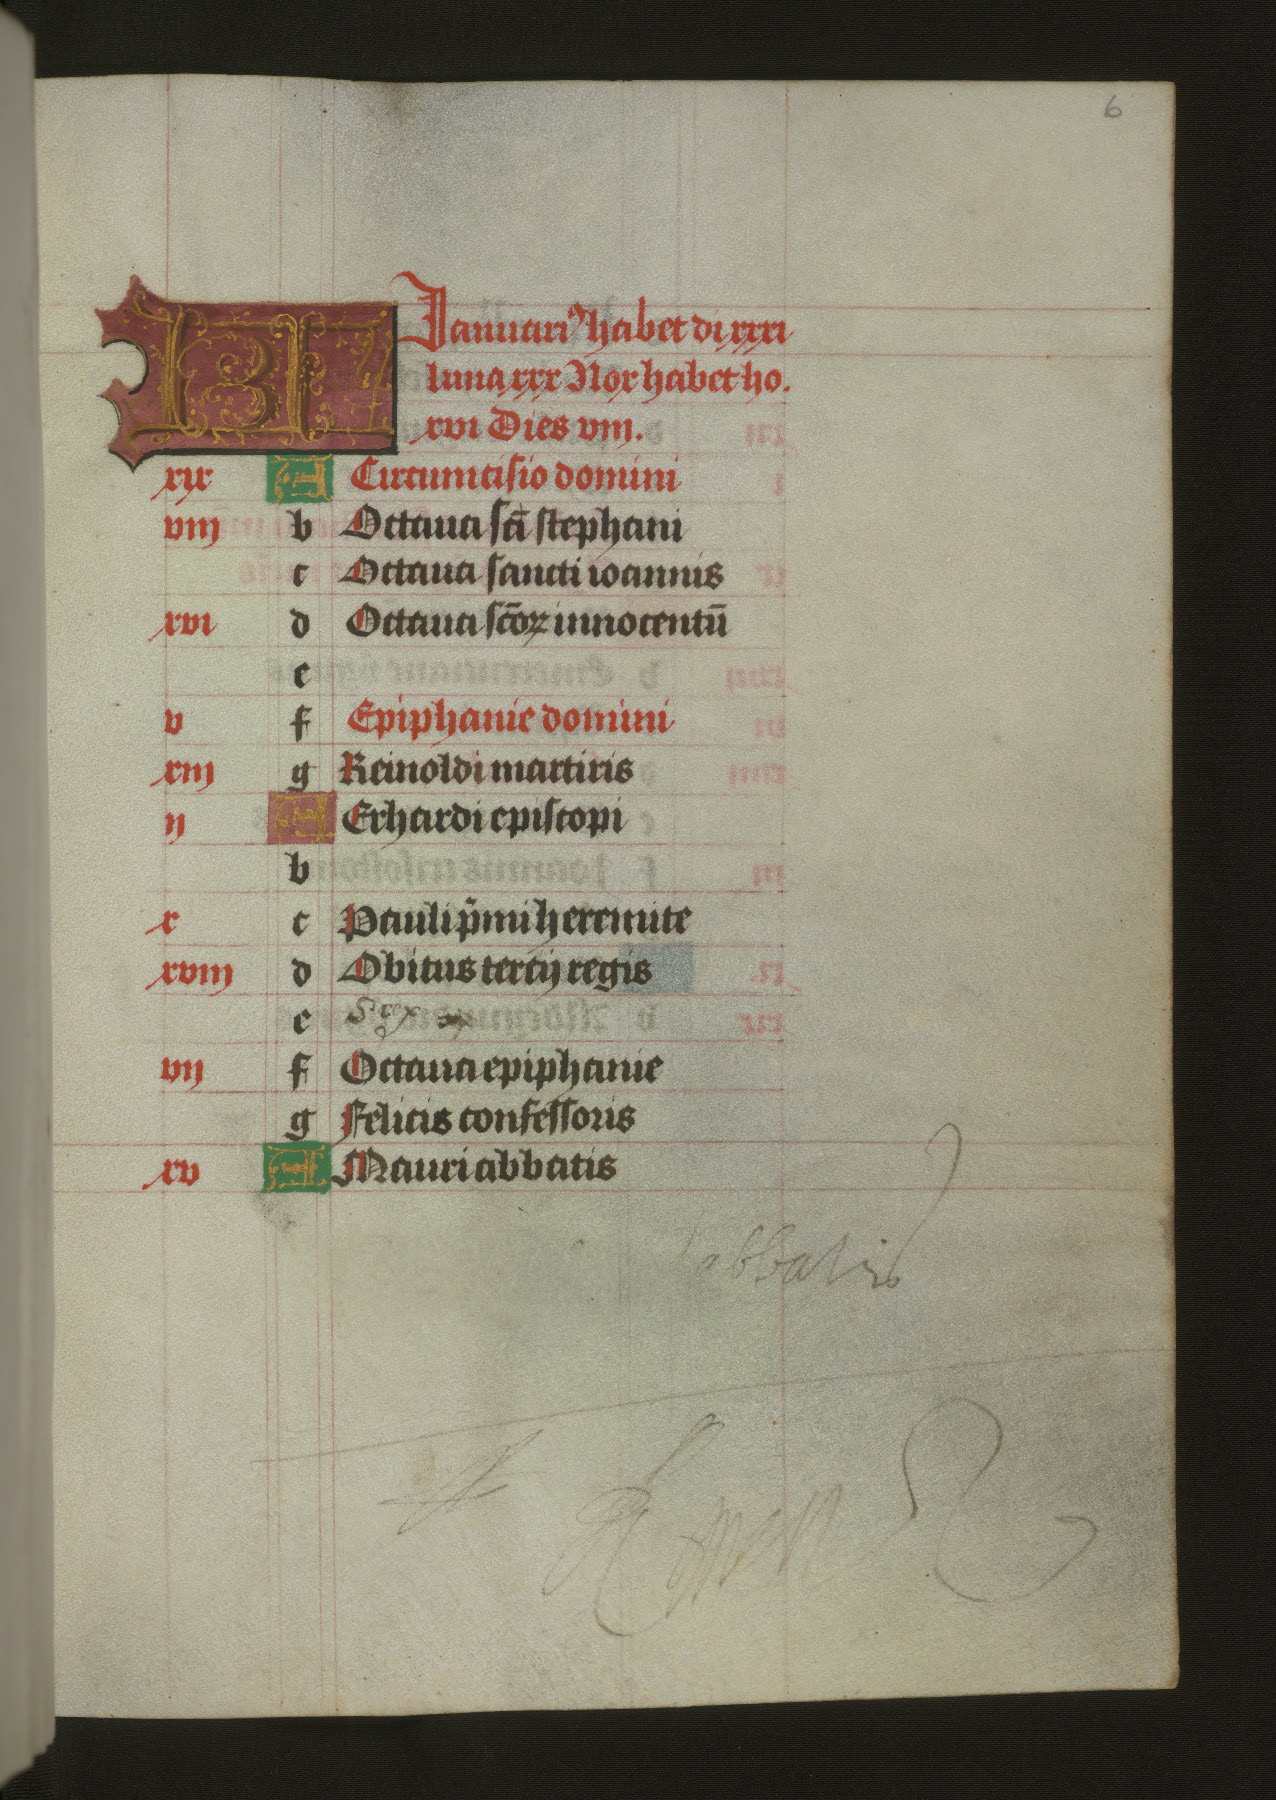 6
KL Januariꝰ habet di xxxi
luna xxx Nox habet ho.
xvi Dies viii.
xix A Circumcisio domini
viii b Octaua sc̄i stephani
c Octaua sancti ioannis
xvi d Octaua sc̄oꝝ innocentū
e
v f Epiphanie domini
xiii g Reinoldi martiris
ii A Erhardi episcopi
b
x c Pauli p̄mi heremite
xviii d Obitus tercij regis
e
vii f Octaua epiphanie
g Felicis confessoris
xv A Mauri abbatis
abbatis